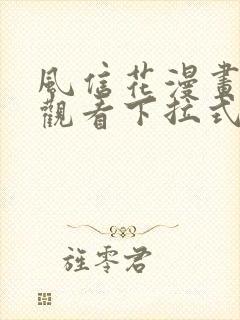 風信花漫畫
觀看下拉式
旌零君